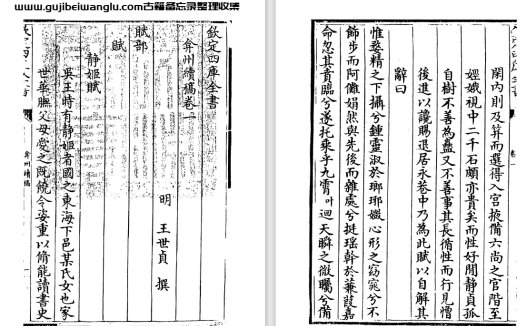 www.gujibeiwanglu.com古籍备忘录整理收集
欽定四庫全書
弇州續稿卷一
明 王世貞 撰
賦部
賦
靜姬賦
吳王時有靜姬者國之東海下邑某氏女也家
世華膴父母愛之既饒令姿重以脩能讀書史
弇州續稿
閑內則及筭而選得入宮掖備六尚之官階至
娙娥視中二千石頗亦貴矣而性好閒靜貞孤
自樹不善為蠱又不善事其長脩性而行見憎
後進以讒賜退居永巷中乃為此賦以自解其
辭曰
惟婺精之下攝兮鍾靈淑於瑯琊孅心形之窈窕兮不
飾步而阿儺娟然與先後而雜處兮挺瑤幹於蒹葭嘉
命忽其賁臨兮遂托乘乎九霄叶迴天瞬之微矚兮備